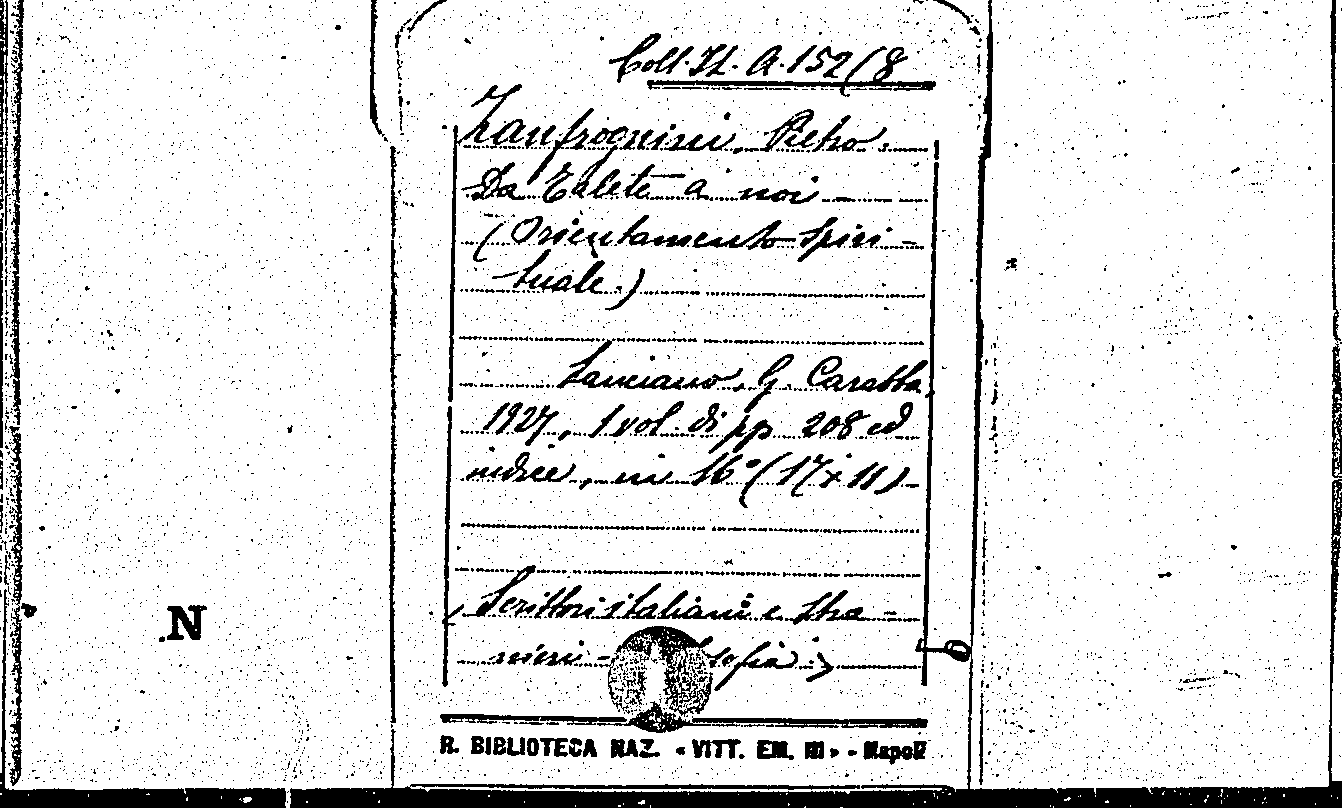 Coll. It. A. 152(8
Zanfrognini, Pietro.
Da Talete a noi —
(Orientamento spiri-
tuale.)
Lanciano, G. Carabba,
1927, 1 vol. di pp 208 ed
indice, in 16° (17x11)
Scrittori italiani e stra-
nieri -
N
R. BIBLIOTECA NAZ. «VITT. EM. III» - Napoli